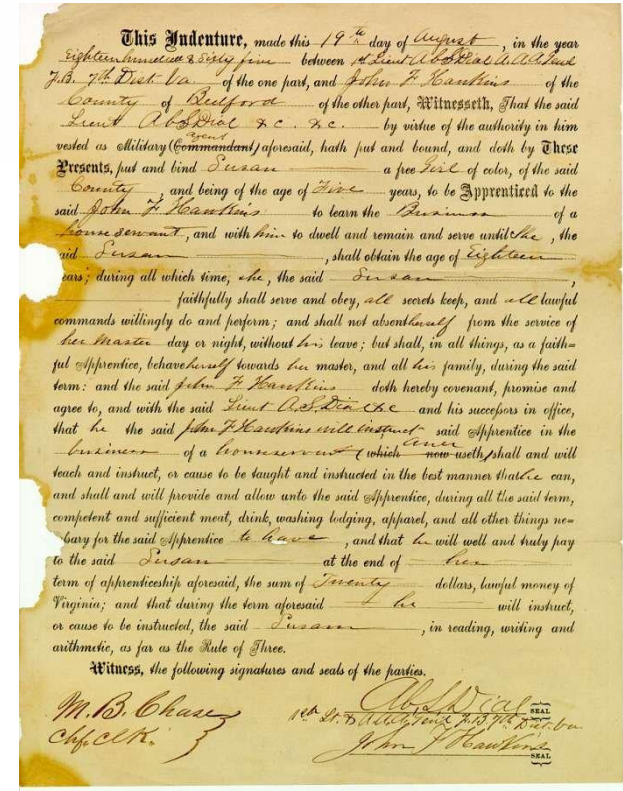 This Indenture, made this 19th day of August, in the year
Eighteen hundred & Sixty five between 1st Lieut A b S Dial A. A.
7th Dist Va of the one part, and John F Hawkins of the
County of Bedford of the other part, Witnesseth, That the said
Lieut A b S Dial &c. &c. by virtue of the authority in him
vested as Military (Commandant) agent aforesaid, hath put and bound, and doth by These
Presents, put and bind Susan a free Girl of color, of the said
County, and being of the age of Five years, to be Apprenticed to the
said John F Hawkins to learn the Business of a
houseservant, and with him to dwell and remain and serve until She, the
aid Susan, shall obtain the age of Eighteen
ears; during all which time, she, the said Susan,
faithfully shall serve and obey, all secrets keep, and all lawful
commands willingly do and perform; and shall not absent herself from the service of
her Master day or night, without his leave; but shall, in all things, as a faith=
ful Apprentice, behave herself towards her master, and all his family, during the said
term: and the said John F Hawkins doth hereby covenant, promise and
agree to, and with the said Lieut A. S. Dial &c and his successors in office,
that he the said John F Hawkins will instruct said Apprentice in the
business of a houseservant (which now useth,) shall and will
teach and instruct, or cause to be taught and instructed in the best manner that he can,
and shall and will provide and allow unto the said Apprentice, during all the said term,
competent and sufficient meat, drink, washing lodging, apparel, and all other things ne=
sary for the said Apprentice to have, and that he will well and truly pay
to the said Susan at the end of her
term of apprenticeship aforesaid, the sum of Twenty dollars, lawful money of
Virginia; and that during the term aforesaid he will instruct,
or cause to be instructed, the said Susan, in reading, writing and
arithmetic, as far as the Rule of Three.
Witness, the following signatures and seals of the parties.
M. B. Chase
Chf. Clk.
Ab S Dial SEAL
1st Lt. & 7th Dist. Va
John F Hawkins SEAL